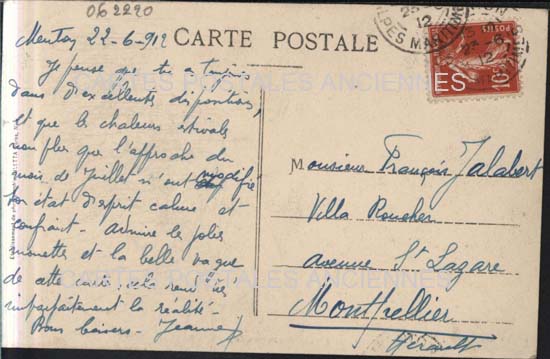 062220
Menton 22-6-912
CARTE POSTALE
Je pense que tu es toujours
dans d'excellentes dispositions,
et que les chaleurs estivales
non plus que l'approche du
mois de Juillet n'ont modifié
ton état d'esprit calme et
confiant - Admire les jolies
mouettes et la belle vague
de cette carte, cela rend très
imparfaitement la réalité -
Bons baisers - Jeanne
Monsieur François Jalabert
Villa Roucher
avenue St Lazare
Montpellier
Hérault
POSTES
10
12
ALPES MARITIMES
CARTES POSTALES ANCIENNES
CARTES POSTALES ANCIENNES